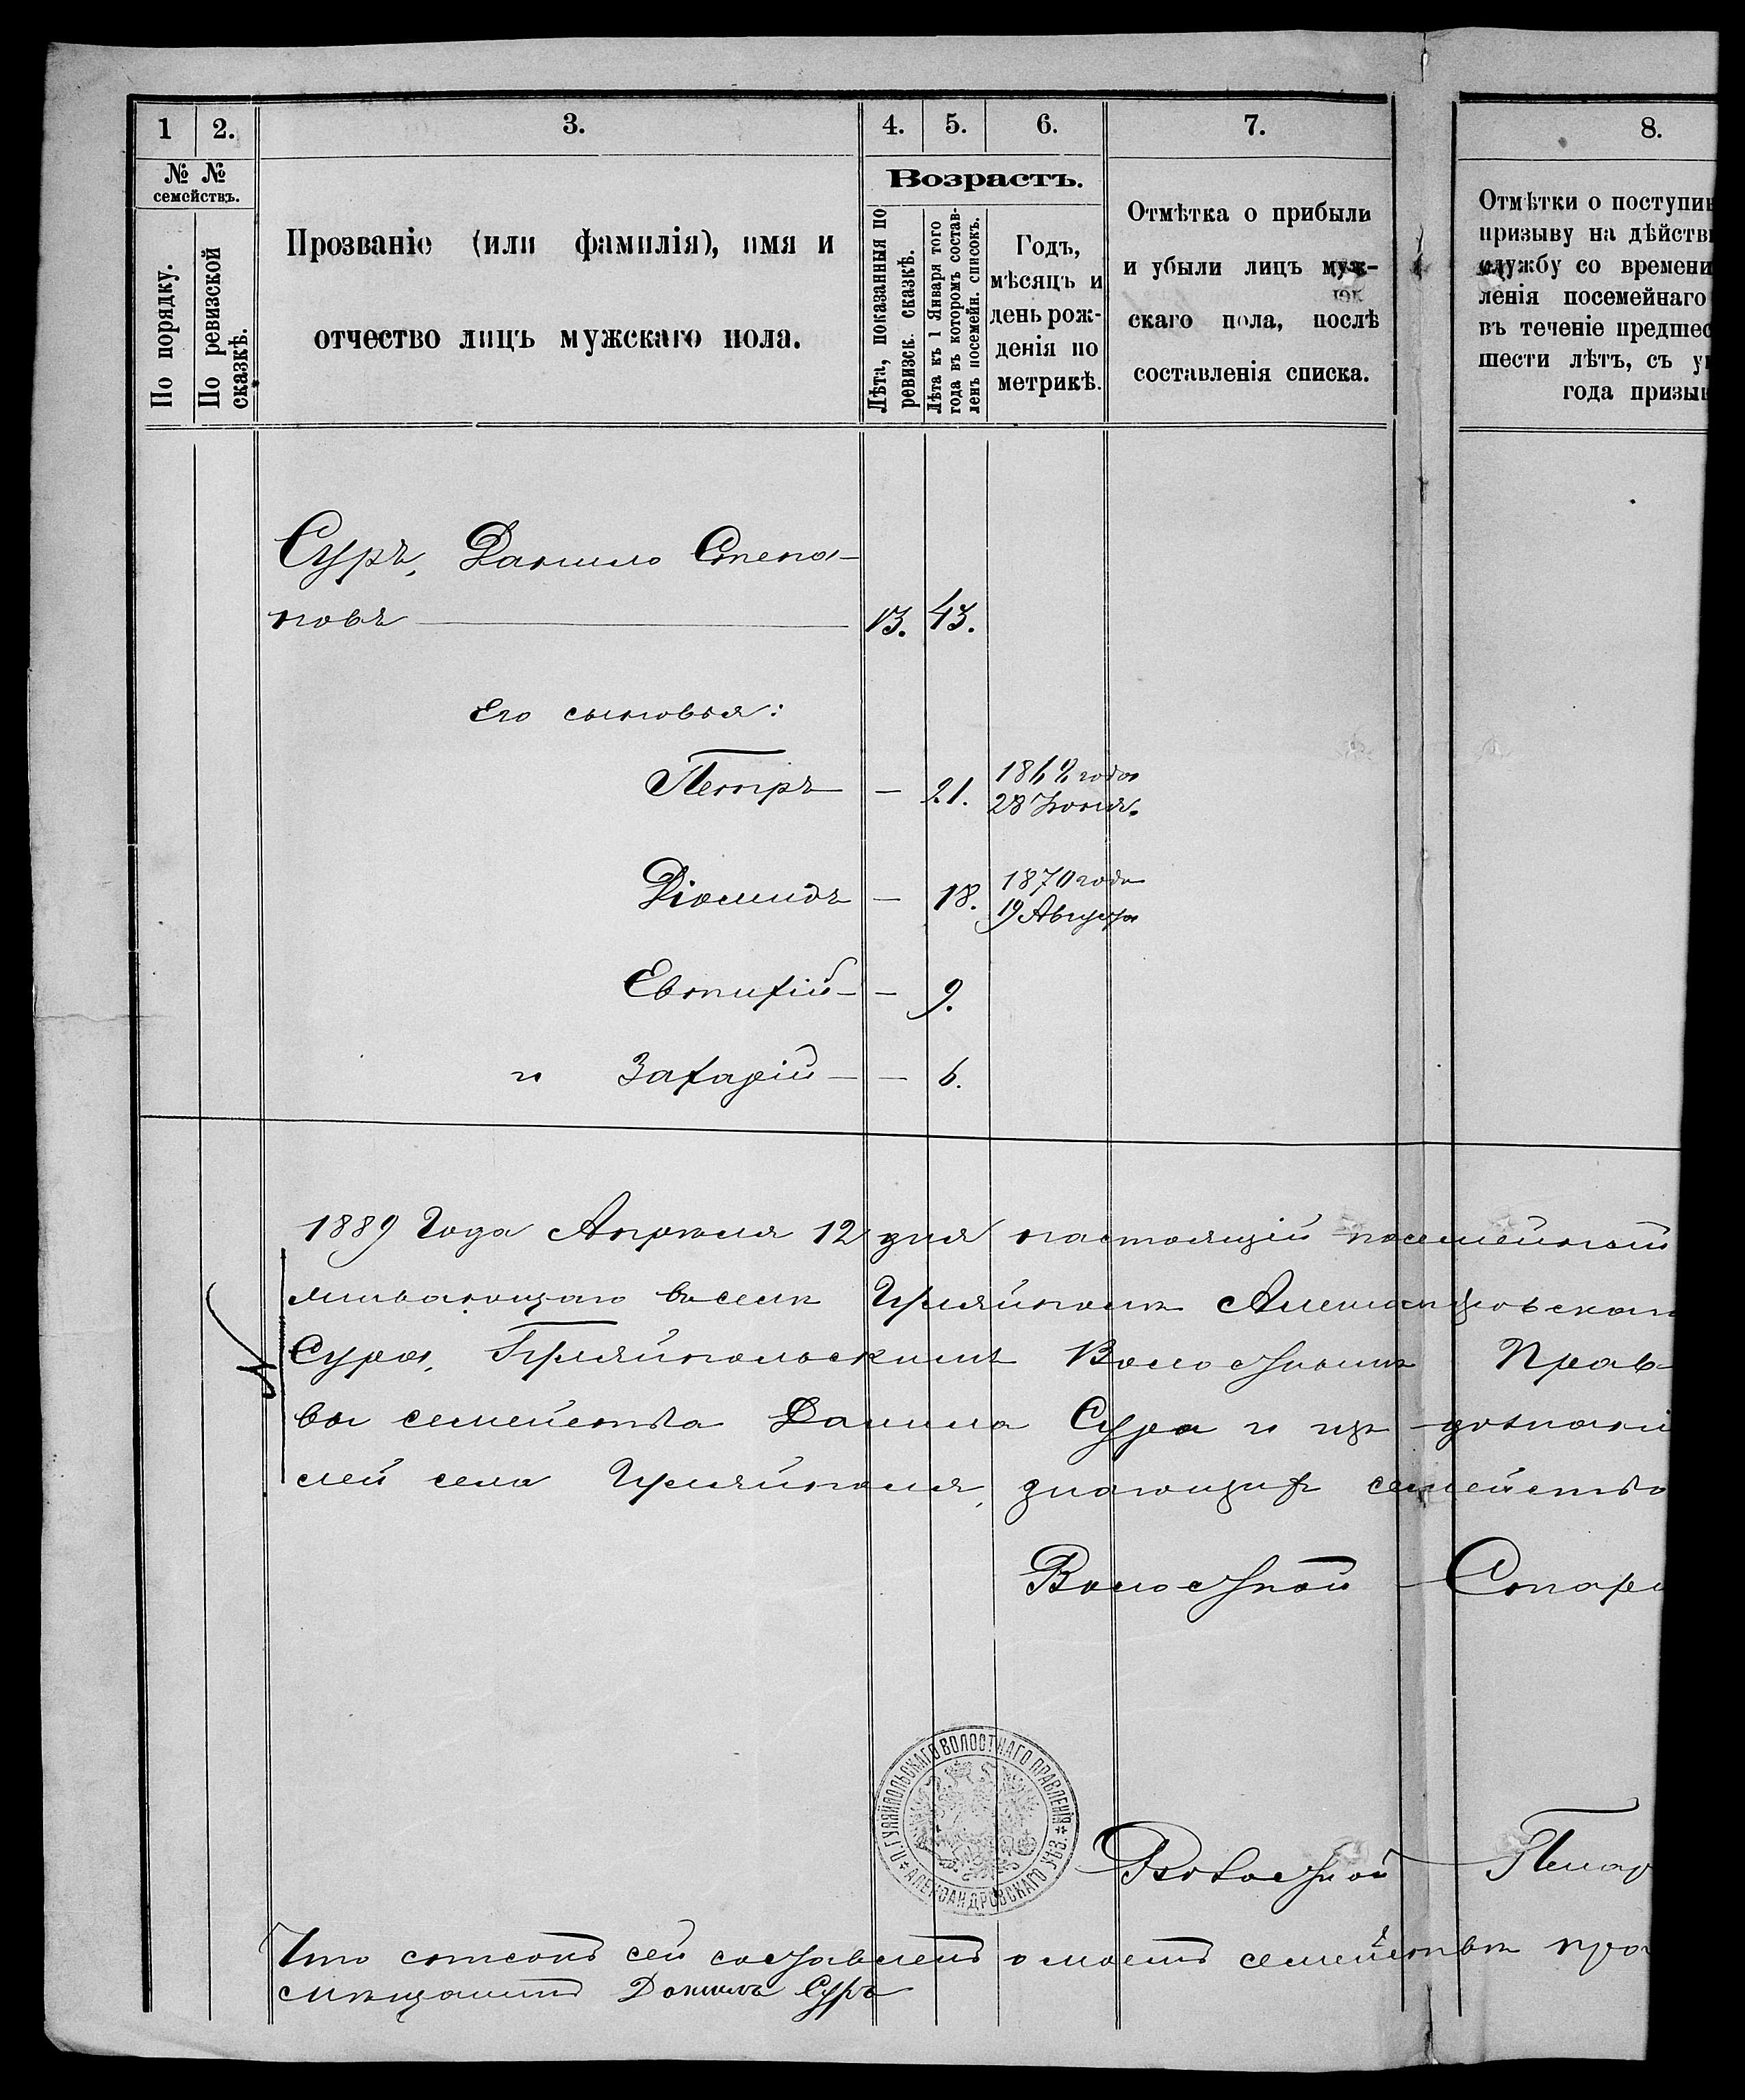 1
2.
3.
4.
5.
6.
7.
8.
№ №
семействъ.
По порядку.
По ревизской
сказкѣ.
Прозваніе (или фамилія), имя и
отчество лицъ мужскаго пола.
Возрастъ.
Лѣта, показанныя по
ревизск. сказкѣ.
Лѣта къ 1 Января того
года въ которомъ состав-
ленъ посемейн. списокъ.
Годъ,
мѣсяцъ и
день рож-
денія по
метрикѣ.
Отмѣтка о прибыли
и убыли лицъ муж-
скаго пола, послѣ
составленія списка.
Отмѣтки о поступив
призыву на дѣйстви
службу со времени
ленія посемейнаго
въ теченіе предшес
шести лѣтъ, съ ук
года призыв
Суръ, Данило Степа-
новъ 13. 43.
Его сыновья:
Петръ — 21. 1868 года
28 Іюня.
Діомидъ — 18. 1870 года
19 Августа
Евтихій — — 9.
и Захарій — — 6.
1889 Года Апреля 12 дня настоящій посемейный
мѣщанину въ селѣ Гуляйполѣ Александровскаго
Сура, Гуляйпольскимъ Волостнымъ Прав-
ва семейства Данила Сура и изъ дознані
лей села Гуляйполя, знающихъ семейство
Волостной Стар
ГУЛЯЙПОЛЬСКАГО ВОЛОСТНАГО ПРАВЛЕНІЯ * АЛЕКСАНДРОВСКАГО УѢЗ.
Волостной Писар
Что списокъ сей составленъ о моемъ семействѣ
мѣщанинъ Данило Суръ